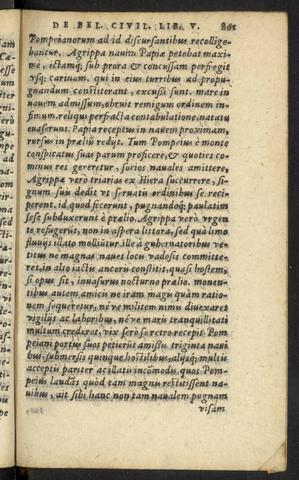 DE BEL. CIVIL. LIB. V. 861
Pompeianorum ad id discursantibus recollige-
bantur. Agrippa nauim Papiæ petebat maxi-
mè, ictamq; sub prora & concussam perfregit
vsq; carinam. qui in eius turribus ad propu-
gnandum constiterant, excussi sunt. mare in
nauem admissum, obruit remigum ordinem in-
fimum. reliqui perfracta contabulatione, natatu
euaserunt. Papia receptus in nauem proximam,
rursus in præliũ redijt. Tum Pompeius è monte
conspicatus suas parum proficere, & quoties co-
minus res gereretur, socios nauales amittere,
Agrippæ verò triarias ex Hiera succurrere, si-
gnum suis dedit vt seruatis ordinibus se reci-
perent. id quod fecerunt, pugnando q; paulatim
sese subduxerunt è prælio. Agrippa verò vrgen
te refugerũt, non in aspera littora, sed quà limo
fluuijs illato mollitur. ille à gubernatoribus ve-
titus ne magnas naues locis vadosis committe-
ret, in alto iactis ancoris constitit, quasi hostem,
si opus sit, inuasurus nocturno prælio. monen-
tibus autem amicis ne iram magis quàm ratio-
nem sequeretur, néve militem nimis diuexaret
vigilijs ac laboribus, néve maris tranquillitati
multum crederet, vix serò se retro recepit. Pom
peiani portus suos petierũt amissis triginta naui
bus, submersis quinque hostilibus, alijsq; multis
acceptis pariter ac illatis incõmodis. quos Pom-
peius laudãs quod tam magnis restitissent na-
uibus, ait sibi hanc non tam naualem pugnam
visam